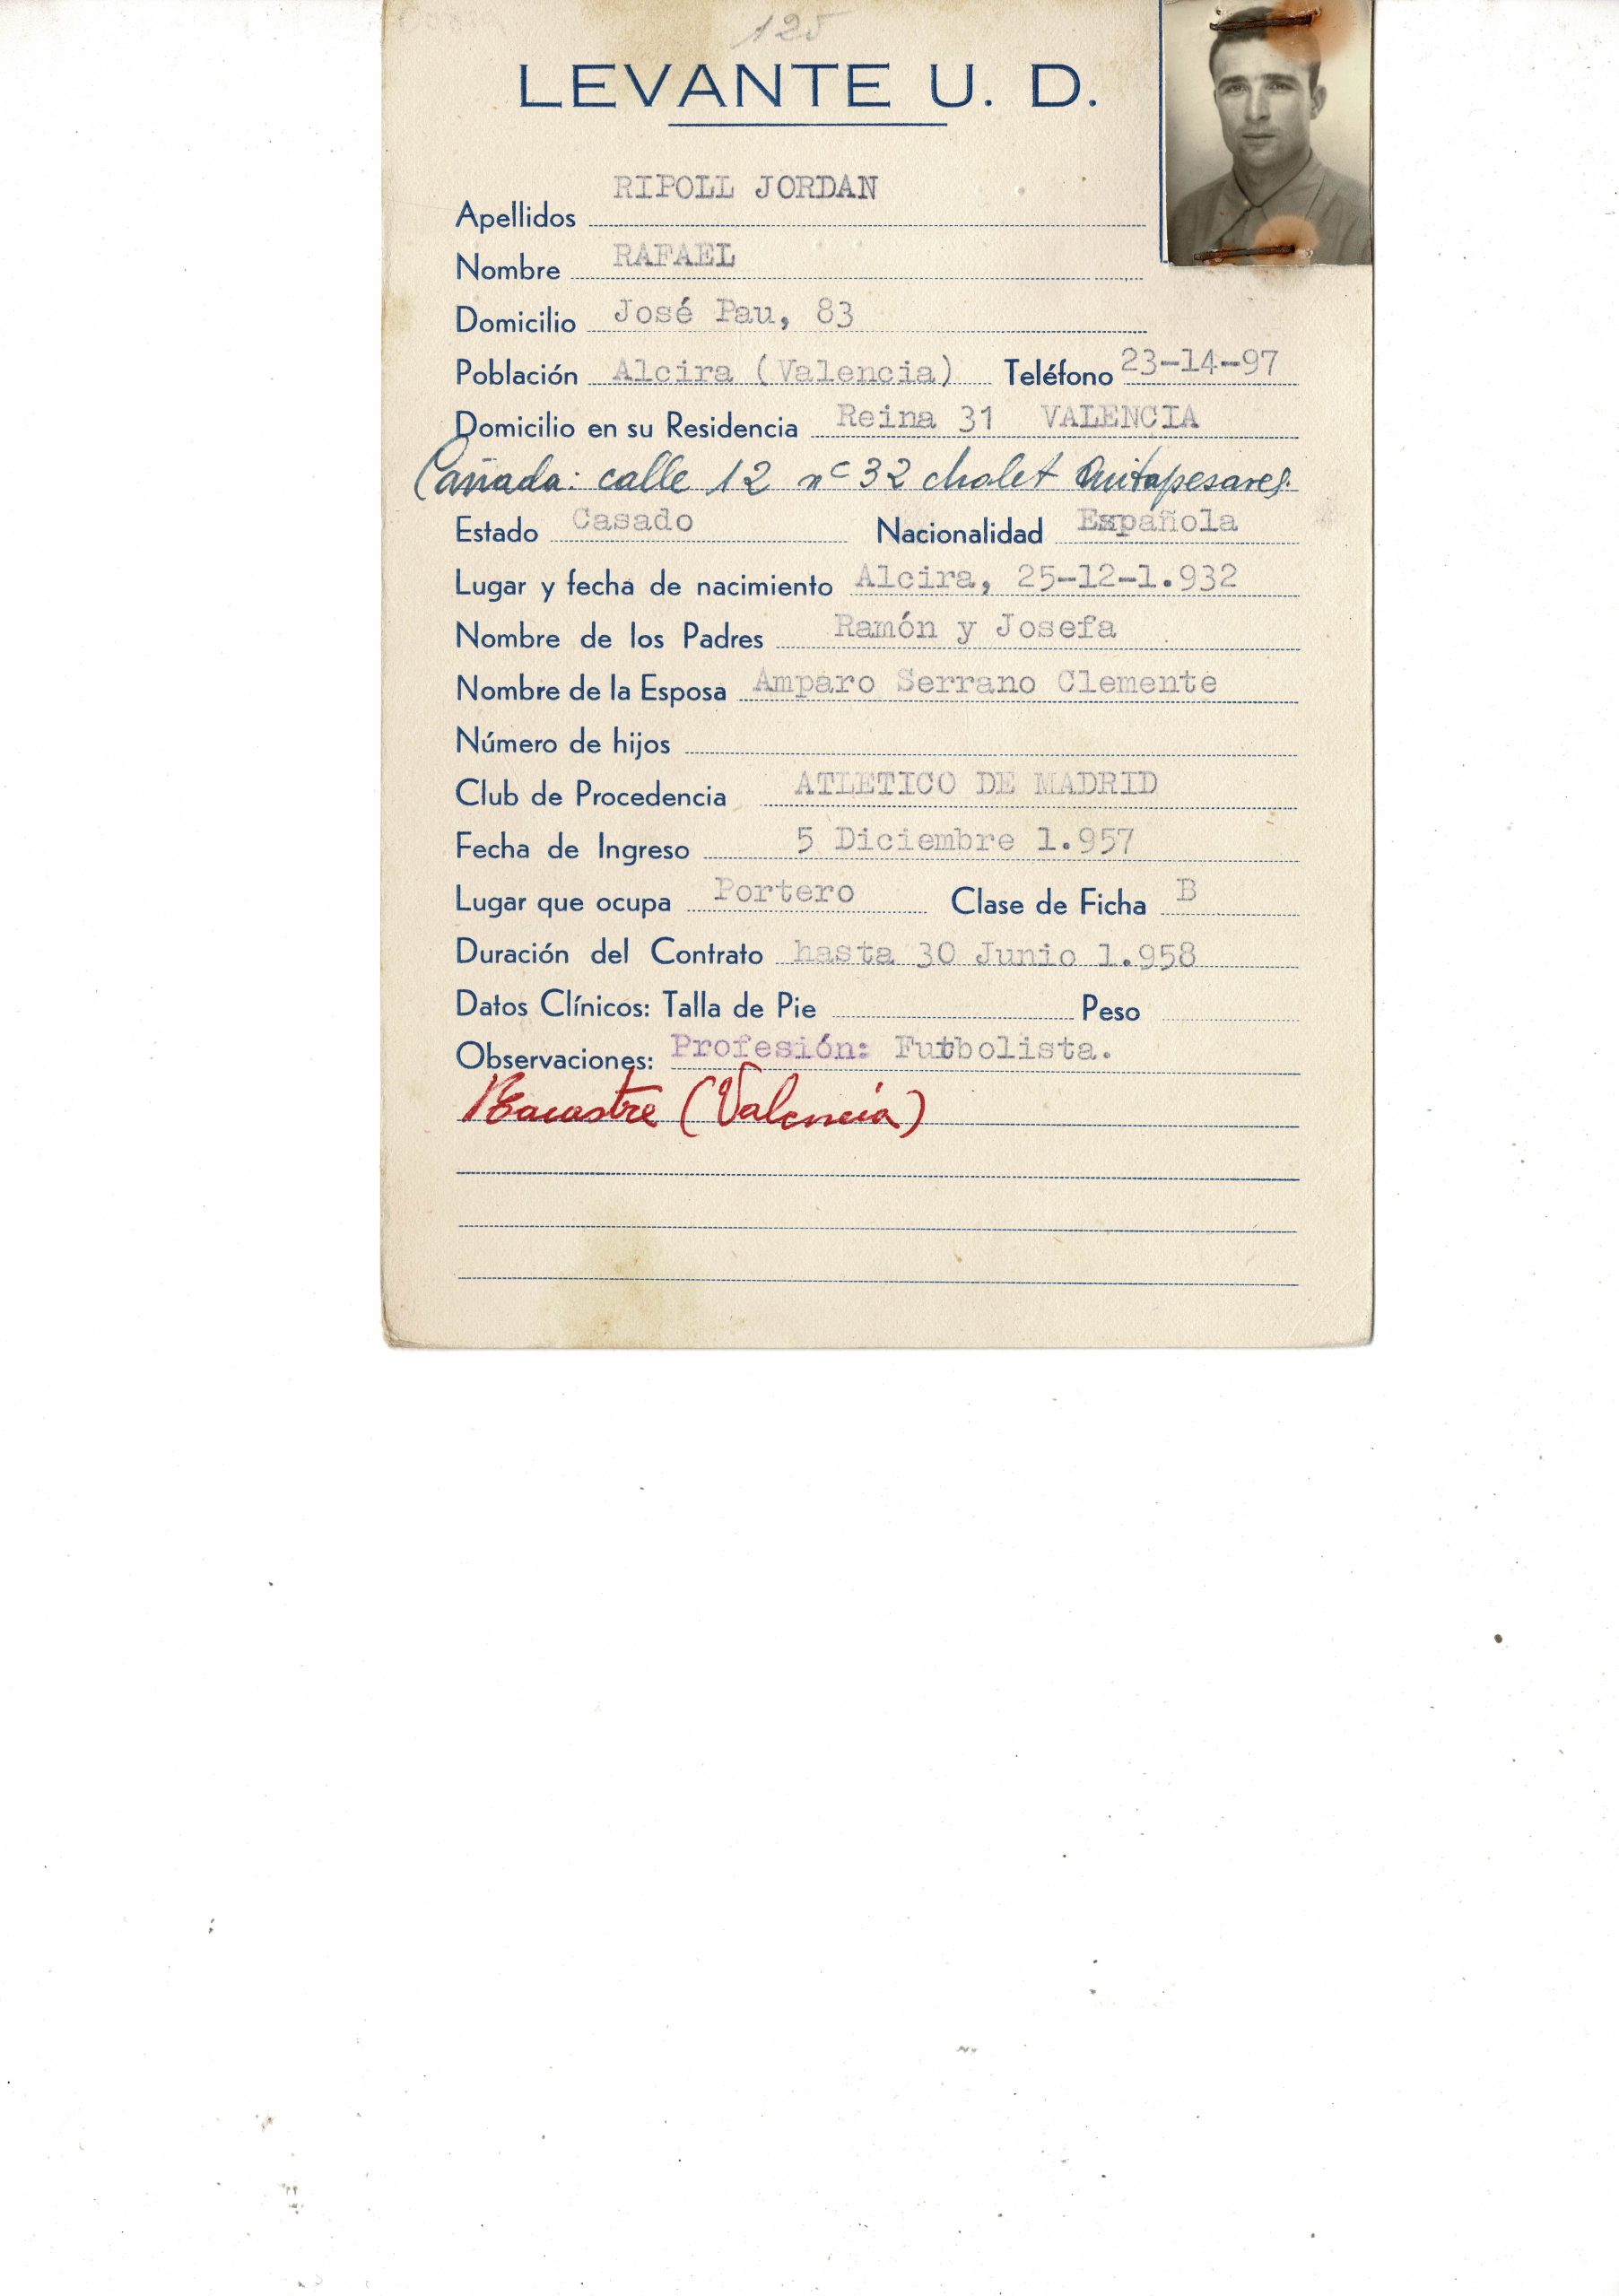 125
LEVANTE U. D.
Apellidos RIPOLL JORDAN
Nombre RAFAEL
Domicilio José Pau, 83
Población Alcira (Valencia) Teléfono 23-14-97
Domicilio en su Residencia Reina 31 VALENCIA
Cañada: calle 12 nº 32 chalet Quitapesares.
Estado Casado Nacionalidad Española
Lugar y fecha de nacimiento Alcira, 25-12-1.932
Nombre de los Padres Ramón y Josefa
Nombre de la Esposa Amparo Serrano Clemente
Número de hijos
Club de Procedencia ATLETICO DE MADRID
Fecha de Ingreso 5 Diciembre 1.957
Lugar que ocupa Portero Clase de Ficha B
Duración del Contrato hasta 30 Junio 1.958
Datos Clínicos: Talla de Pie Peso
Observaciones: Profesión: Futbolista.
(Valencia)